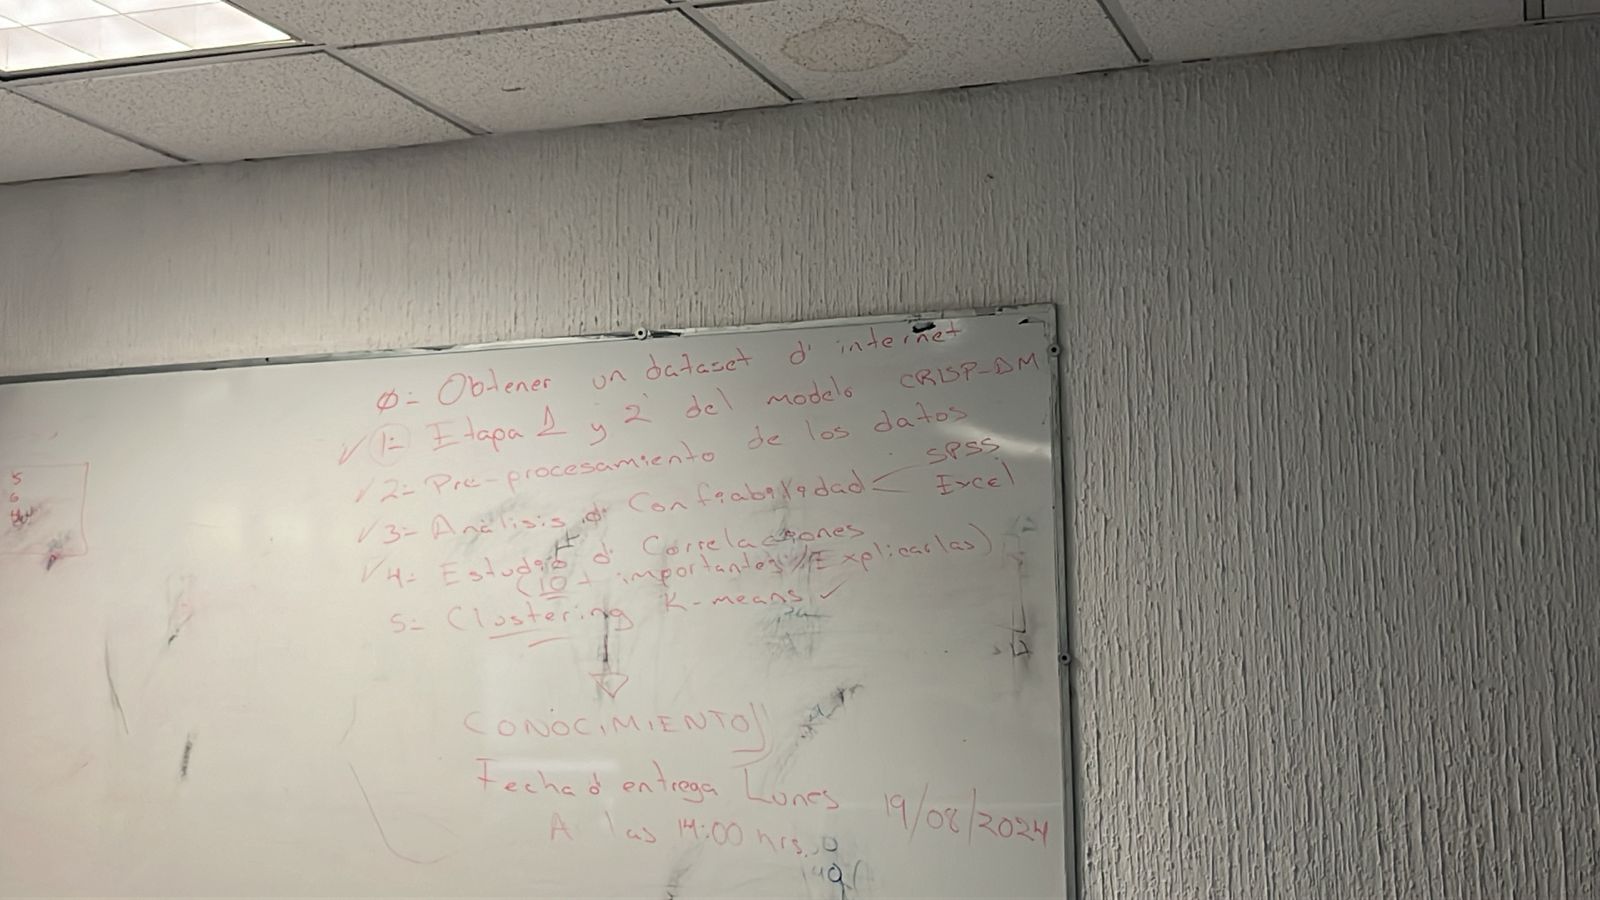 0= Obtener un dataset d' internet
✓ 1= Etapa 1 y 2 del modelo CRISP-DM
✓ 2= Pre-procesamiento de los datos
✓ 3= Análisis d' Confiabilidad < SPSS
Excel
✓ 4= Estudio d' Correlaciones
(10 + importantes / Explicarlas)
5= Clustering K-means ✓
CONOCIMIENTO
Fecha d' entrega Lunes 19/08/2024
A las 14:00 hrs.
5
6